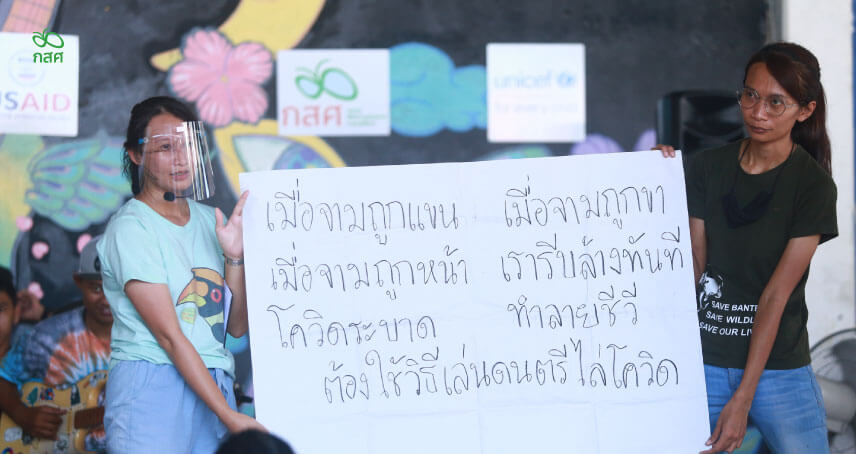 กสศ
USAID
กสศ
unicef
for every child
เมื่อจามถูกแขน เมื่อจามถูกขา
เมื่อจามถูกหน้า เรารีบล้างทันที
โควิดระบาด ทำลายชีวี
ต้องใช้วิธีเล่นดนตรีไล่โควิด
SAVE WILDL
SAVE OUR LIV